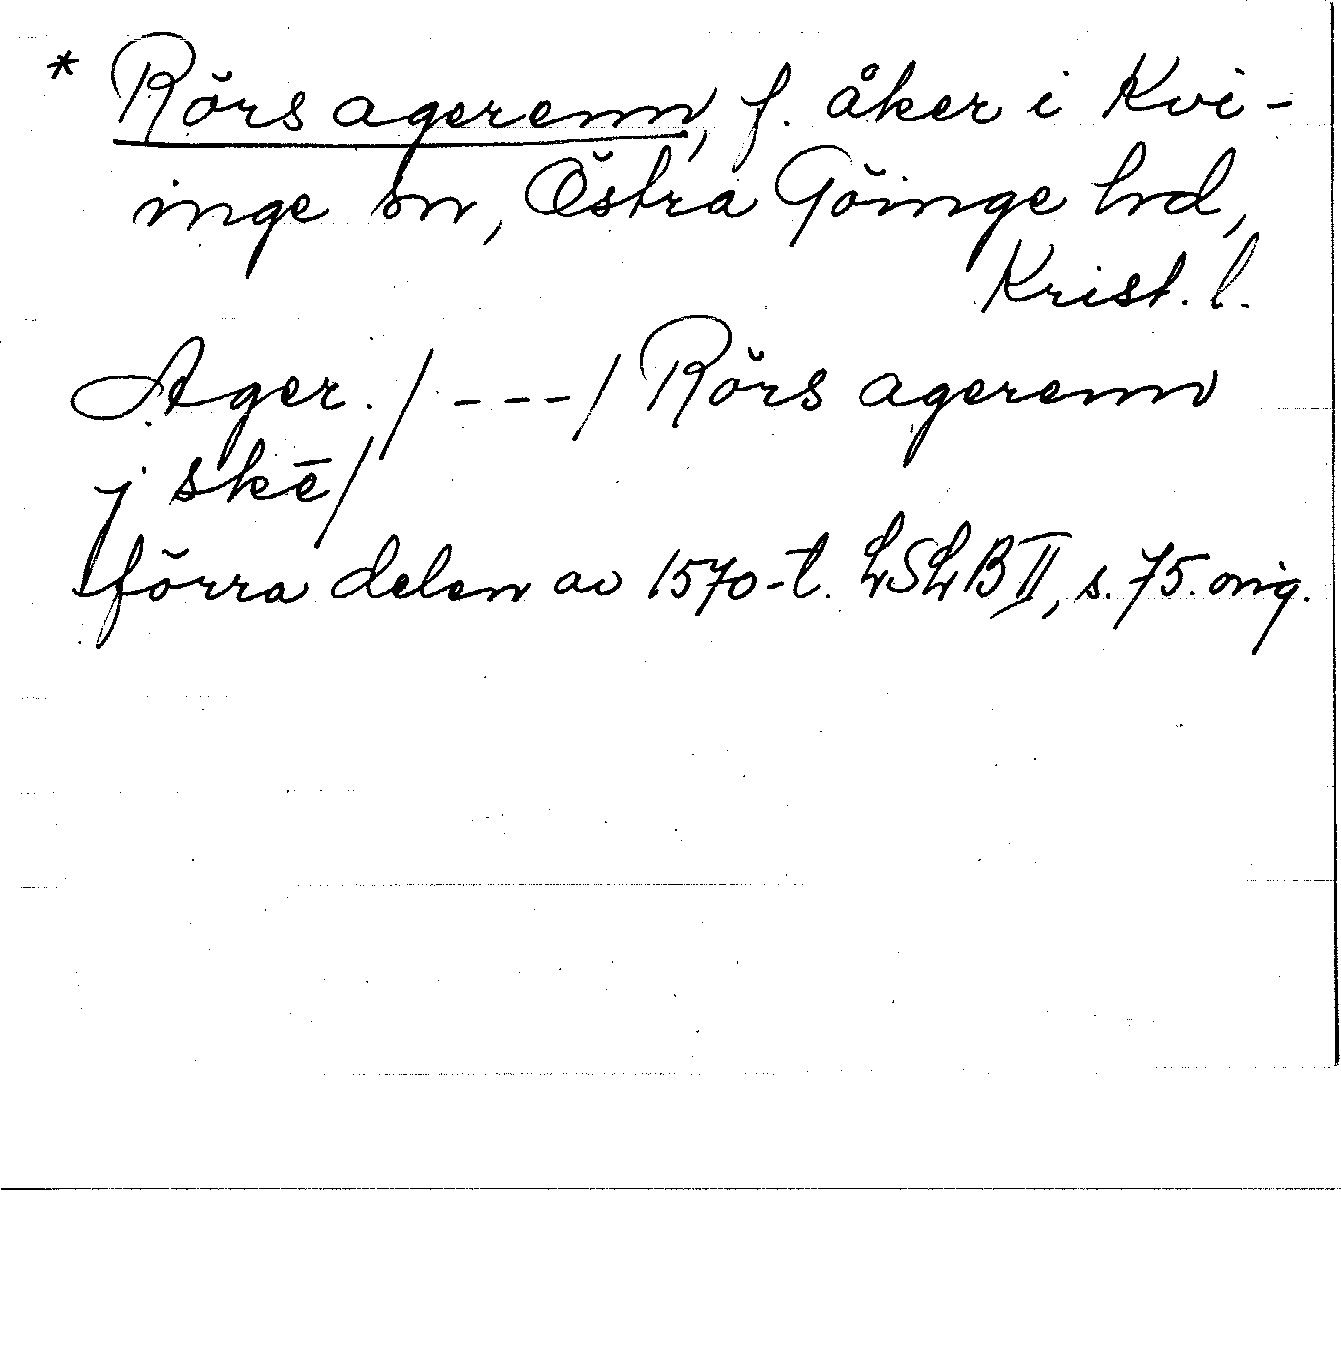 * Rörs agerenn, f. åker i Kvi-
inge sn, Östra Göinge hrd,
Krist. l.
Ager. / - - - / Rörs agerenn
j skē /
förra delen av 1570-t. LSLB II, s. 75. orig.